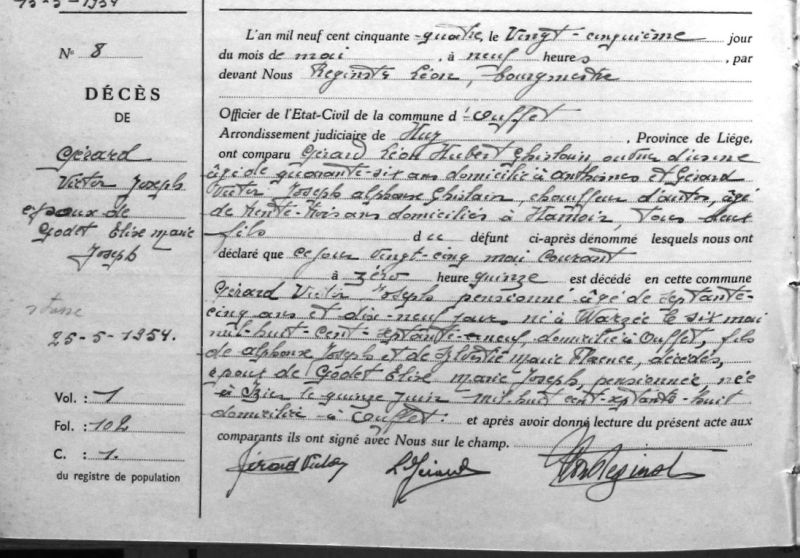 25-5-1954
N° 8
DÉCÈS
DE
Gérard
Victor Joseph
époux de
Godet Elise marie
Joseph
25-5-1954.
Vol. : 1
Fol. : 102
C. : 1.
du registre de population
L'an mil neuf cent cinquante -quatre, le Vingt-cinquième jour
du mois de mai, à neuf heures, par
devant Nous Reginster Léon, bourgmestre
Officier de l'Etat-Civil de la commune d'Ouffet
Arrondissement judiciaire de Huy, Province de Liége,
ont comparu Gérard Léon Hubert Ghislain, ouvrier d'usine
âgé de quarante-six ans domicilié à anthisnes et Gérard
Victor Joseph alphonse Ghislain, chauffeur d'autos, âgé
de trente-trois ans domicilié à Hamoir, tous deux
fils du défunt ci-après dénommé lesquels nous ont
déclaré que ce jour vingt-cinq mai courant
à zéro heure quinze est décédé en cette commune
Gérard Victor Joseph pensionné âgé de septante-
cinq ans et dix-neuf jours né à Warzée le six mai
mil-huit-cent-septante-neuf, domicilié à Ouffet, fils
de alphonse Joseph et de marie décédés,
époux de Godet Elise marie Joseph, pensionnée, née
à Izier le quinze juin mil huit cent-septante-huit
domiciliée à Ouffet. et après avoir donné lecture du présent acte aux
comparants ils ont signé avec Nous sur le champ.
Gérard Victor L Gérard Léon Reginster